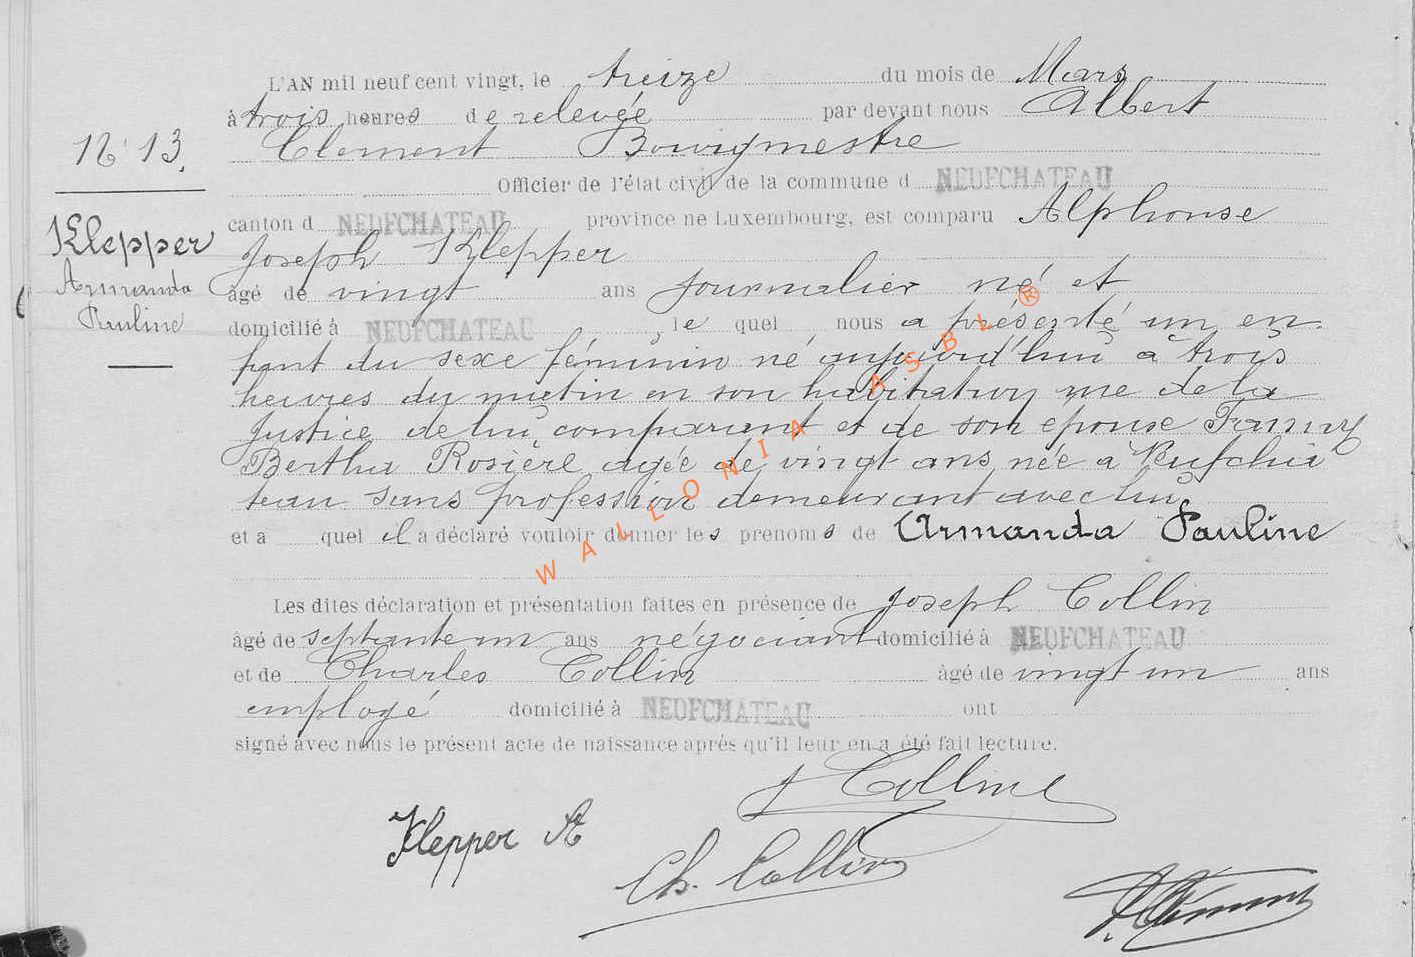 L'AN mil neuf cent vingt, le treize du mois de Mars
à trois heures de relevée par devant nous Albert
Clement Bourgmestre
Officier de l'état civil de la commune d NEUFCHATEAU
canton d NEUFCHATEAU province ne Luxembourg, est comparu Alphonse
Joseph Klepper
âgé de vingt ans journalier né et
domicilié à NEUFCHATEAU, le quel nous a présenté un en-
fant du sexe féminin né aujourd'hui à trois
heures du matin en son habitation rue de la
Justice de lui comparant et de son épouse Fanny
Bertha Rosière agée de vingt ans née à Neufchâ
teau sans profession demeurant avec lui
et a quel il a déclaré vouloir donner les prénoms de Armanda Pauline
Les dites déclaration et présentation faites en présence de Joseph Collin
âgé de septante un ans négociant domicilié à NEUFCHATEAU
et de Charles Collin âgé de vingt un ans
employé domicilié à NEUFCHATEAU ont
signé avec nous le présent acte de naissance après qu'il leur en a été fait lecture.
N° 13.
Klepper
Armanda
Pauline
J Collin
Klepper A
Ch. Collin
A. Clément
WALLONIA ASBL ®